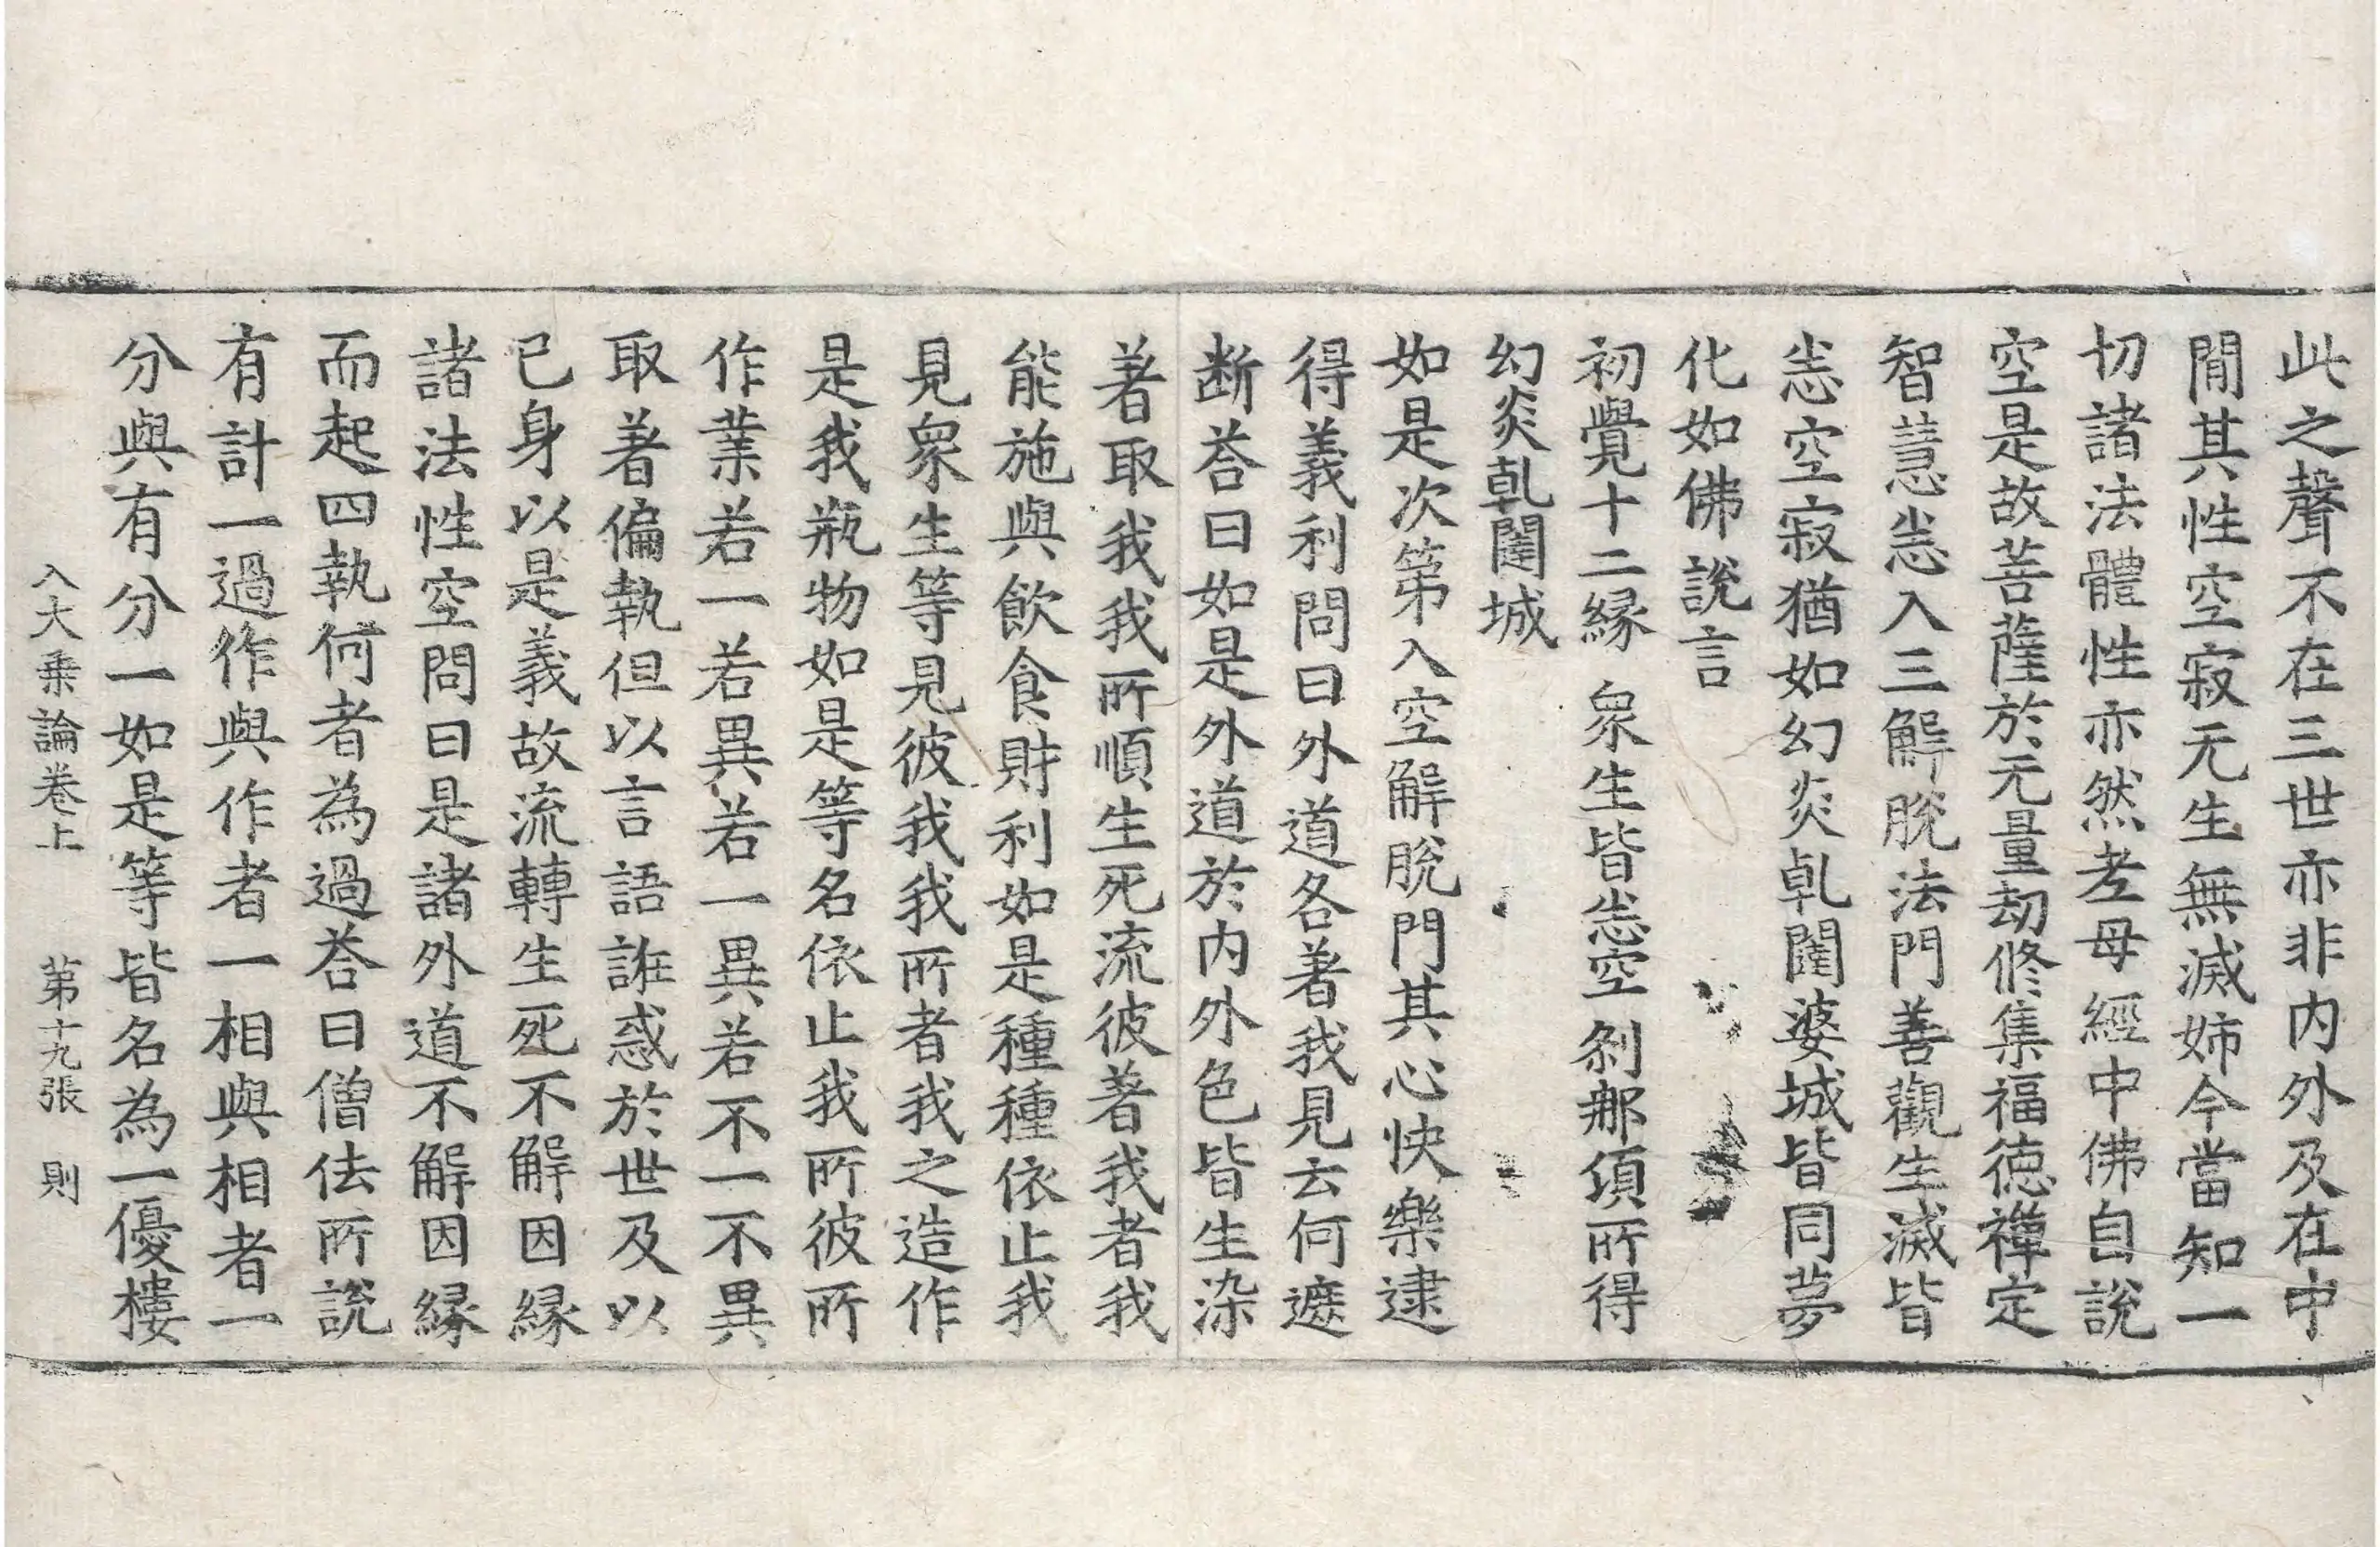 此之聲不在三世亦非内外及在中
閒其性空寂无生無滅姉今當知一
切諸法體性亦然老母經中佛自說
空是故菩薩於无量劫修集福德禪定
智慧𢘻入三解脫法門善觀生滅皆
𢘻空寂猶如幻炎乹闥婆城皆同夢
化如佛說言
初覺十二縁 衆生皆𢘻空 刹那須所得
幻炎乹闥城
如是次第入空解脫門其心快樂逮
得義利問曰外道各著我見云何遮
断荅曰如是外道於内外色皆生染
著取我我所順生死流彼著我者我
能施與飲食財利如是種種依止我
見衆生等見彼我我所者我之造作
是我瓶物如是等名依止我所彼所
作業若一若異若一異若不一不異
取著偏執但以言語誑惑於世及以
已身以是義故流轉生死不解因縁
諸法性空問曰是諸外道不解因縁
而起四執何者為過荅曰僧佉所說
有計一過作與作者一相與相者一
分與有分一如是等皆名為一優樓
入大乗論卷上 第十九張 則